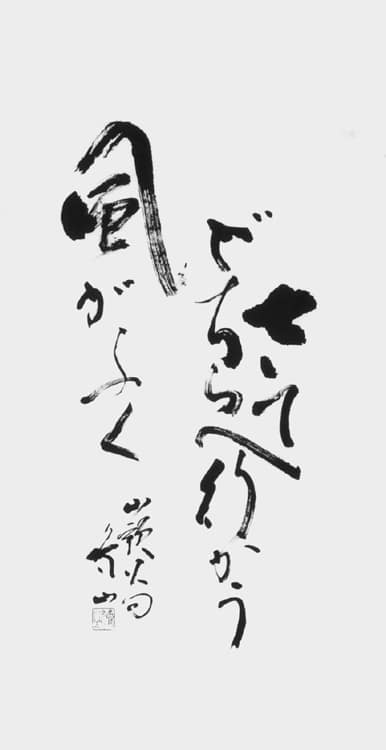 さて
どちらへ行かう
風がふく
山頭火句